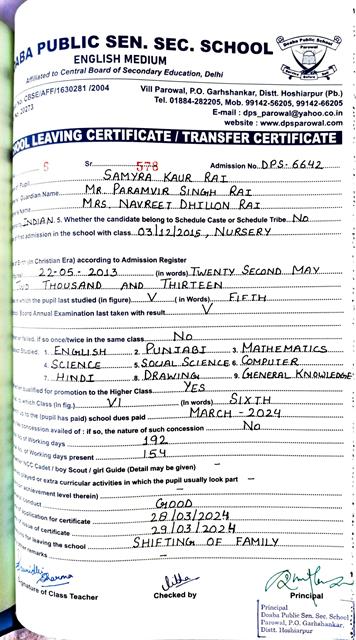 Doaba Public School
Parowal
ABA PUBLIC SEN. SEC. SCHOOL
ENGLISH MEDIUM
Affiliated to Central Board of Secondary Education, Delhi
No. CBSE/AFF/1630281 /2004
20273
Vill Parowal, P.O. Garhshankar, Distt. Hoshiarpur (Pb.)
Tel. 01884-282205, Mob. 99142-56205, 99142-66205
E-mail : dps_parowal@yahoo.co.in
website : www.dpsparowal.com
OOL LEAVING CERTIFICATE / TRANSFER CERTIFICATE
5 Sr. 578 Admission No. DPS-6642
Pupil SAMYRA KAUR RAI
Guardian Name MR. PARAMVIR SINGH RAI
Name MRS. NAVREET DHILLON RAI
INDIAN 5. Whether the candidate belong to Schedule Caste or Schedule Tribe No
first admission in the school with class 03/12/2015, NURSERY
Birth (in Christian Era) according to Admission Register
22-05-2013 (in words) TWENTY SECOND MAY
TWO THOUSAND AND THIRTEEN
in which the pupil last studied (in figure) V (in Words) FIFTH
Board Annual Examination last taken with result V
failed, if so once/twice in the same class No
Studied: 1. ENGLISH 2. PUNJABI 3. MATHEMATICS
4. SCIENCE 5. SOCIAL SCIENCE 6. COMPUTER
7. HINDI 8. DRAWING 9. GENERAL KNOWLEDGE
qualified for promotion to the Higher Class YES
to which Class (in fig.) VI (in Words) SIXTH
up to the (pupil has paid) school dues paid MARCH-2024
concession availed of : if so, the nature of such concession No
No. of Working days 192
of Working days present 154
NCC Cadet / boy Scout / girl Guide (Detail may be given) -
played or extra curricular activities in which the pupil usually look part -
achievement level therein) -
conduct GOOD
of application for certificate 28/03/2024
of issue of certificate 29/03/2024
for leaving the school SHIFTING OF FAMILY
remarks -
Sharma
Signature of Class Teacher
Checked by
Principal
Principal
Doaba Public Sen. Sec. School
Parowal, P.O. Garhshankar,
Distt. Hoshiarpur